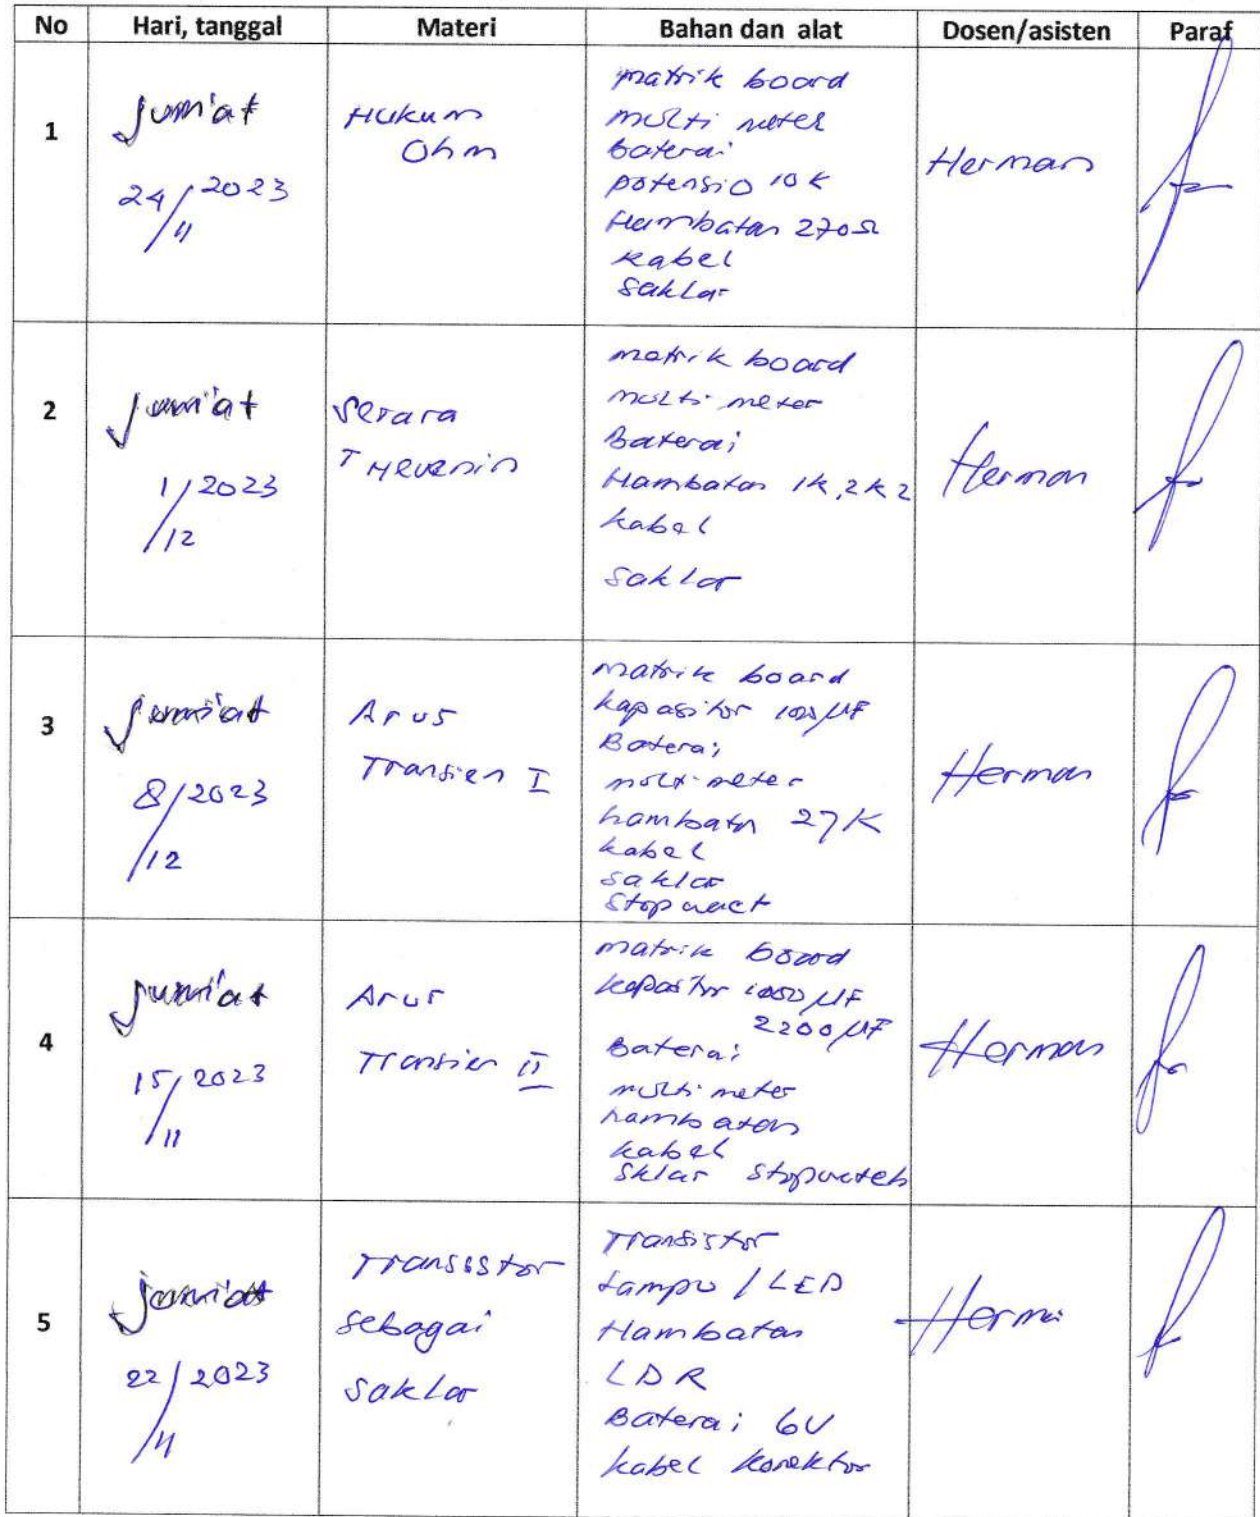 No Hari, tanggal Materi Bahan dan alat Dosen/asisten Paraf
1
Jum'at
24/11 2023
Hukum
Ohm
matrik board
multi meter
baterai
potensio 10 K
Hambatan 270Ω
kabel
saklar
Herman
2
Jum'at
1/12 2023
Setara
Thevenin
matrik board
multi meter
Baterai
Hambatan 1k, 2k2
kabel
saklar
Herman
3
Jum'at
8/12 2023
Arus
Transien I
matrik board
kapasitor µF
Baterai
multi meter
hambatn 27K
kabel
saklar
Stop
Herman
4
Jum'at
15/11 2023
Arus
Transien II
matrik board
kapasitor 1000 µF
2200 µF
Baterai
multi meter
hambatan
kabel
Sklar
Herman
5
Jum'at
22/11 2023
Transistor
sebagai
saklar
Transistor
Lampu / LED
Hambatan
LDR
Baterai 6V
kabel konektor
Herman